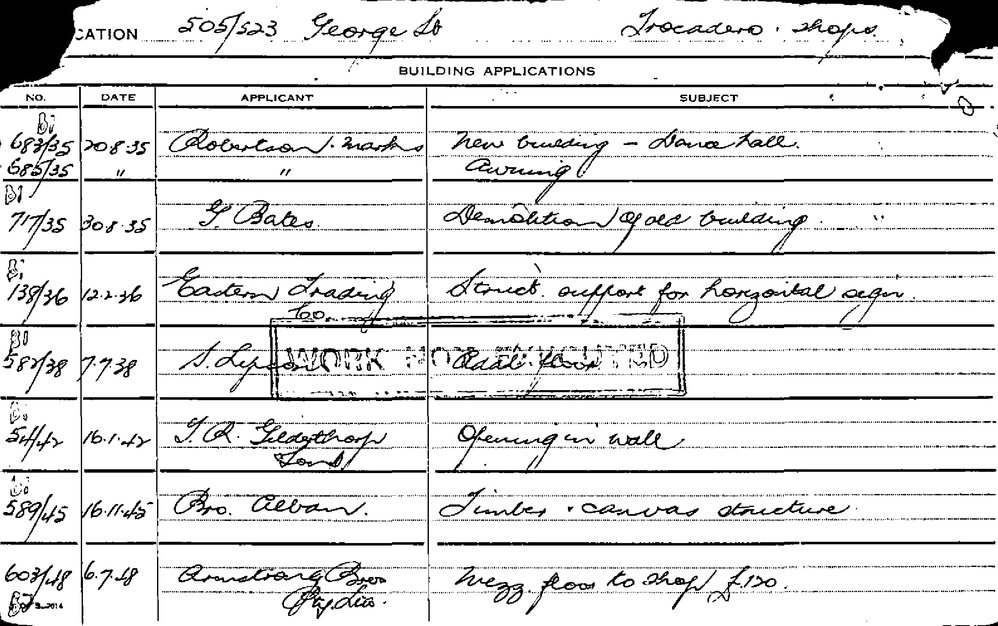 CATION 505/523 George St Trocadero . shops.
BUILDING APPLICATIONS
NO. DATE APPLICANT SUBJECT
B1
683/35 20.8.35 Robertson . Marks New building - Dance hall.
685/35 " " Awning.
B1
717/35 30.8.35 G. Bates. Demolition of old building.
B1
138/36 12.2.36 Eastern Trading Struct. support for horizontal sign.
Co.
B1
582/38 7.7.38 S. Lipson Addl floor
WORK NOT EXECUTED
B1
54/42 16.1.42 Opening in wall
B1
589/45 16.11.45 Bro. Alban. Timber . canvas structure.
603/48 6.7.48 Armstrong Bros Mezz. floor to shop £120.
B1 Pty Ltd.